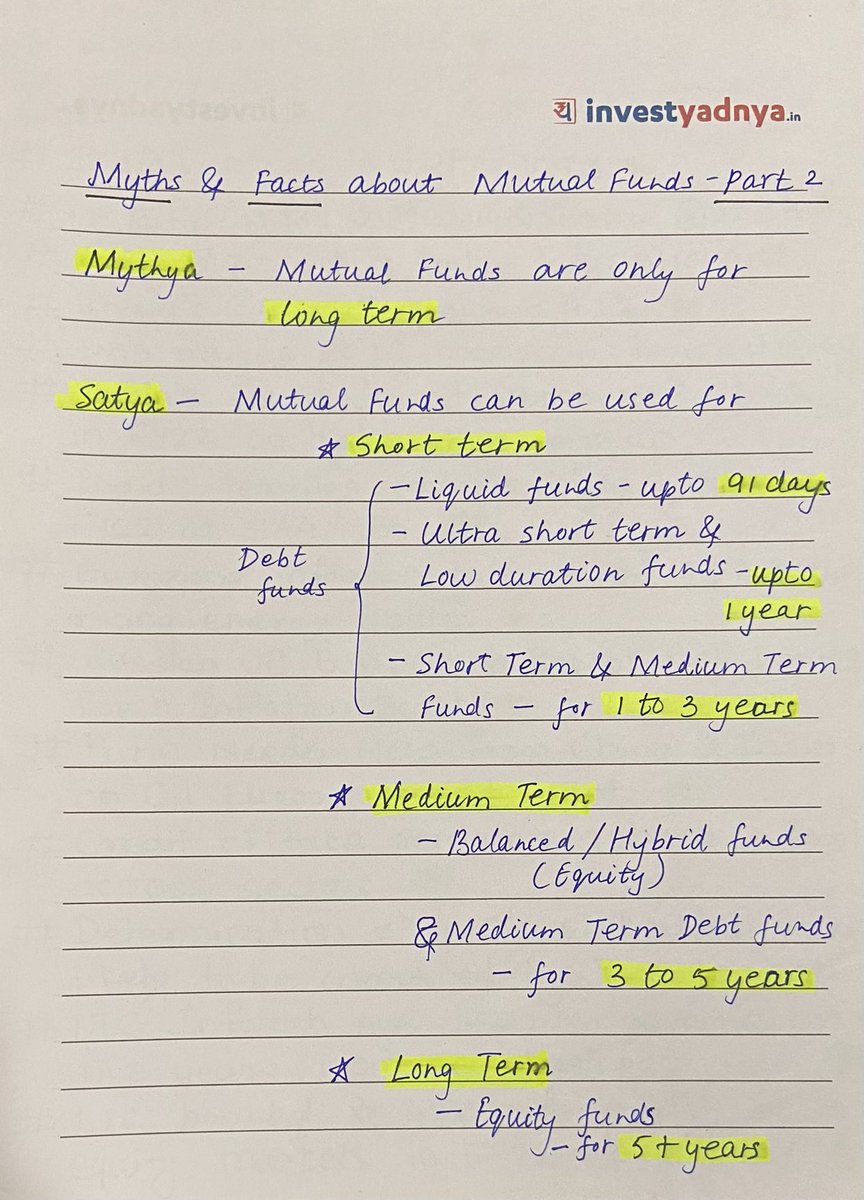 य investyadnya.in
Myths & Facts about Mutual Funds - Part 2
Mythya - Mutual Funds are only for
long term
Satya - Mutual Funds can be used for
☆ Short term
- Liquid funds - upto 91 days
- Ultra short term &
Debt
funds
Low duration funds - upto
1 year
- Short Term & Medium Term
Funds - for 1 to 3 years
☆ Medium Term
- Balanced / Hybrid funds
(Equity)
& Medium Term Debt funds
- for 3 to 5 years
☆ Long Term
- Equity funds
- for 5+ years